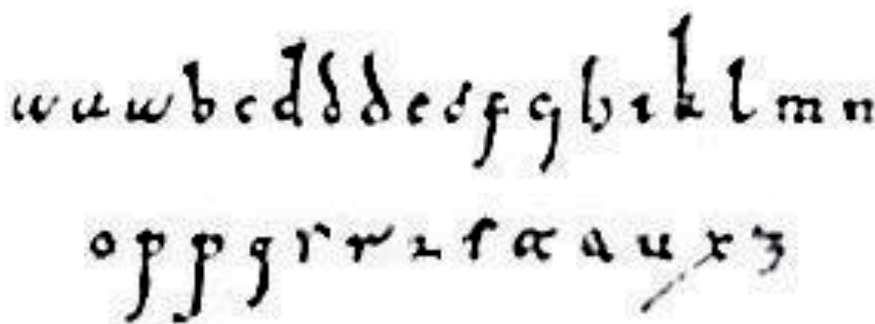 a a a b c d d d e e f g h i k l m n
o p p q r r r s t t u x z